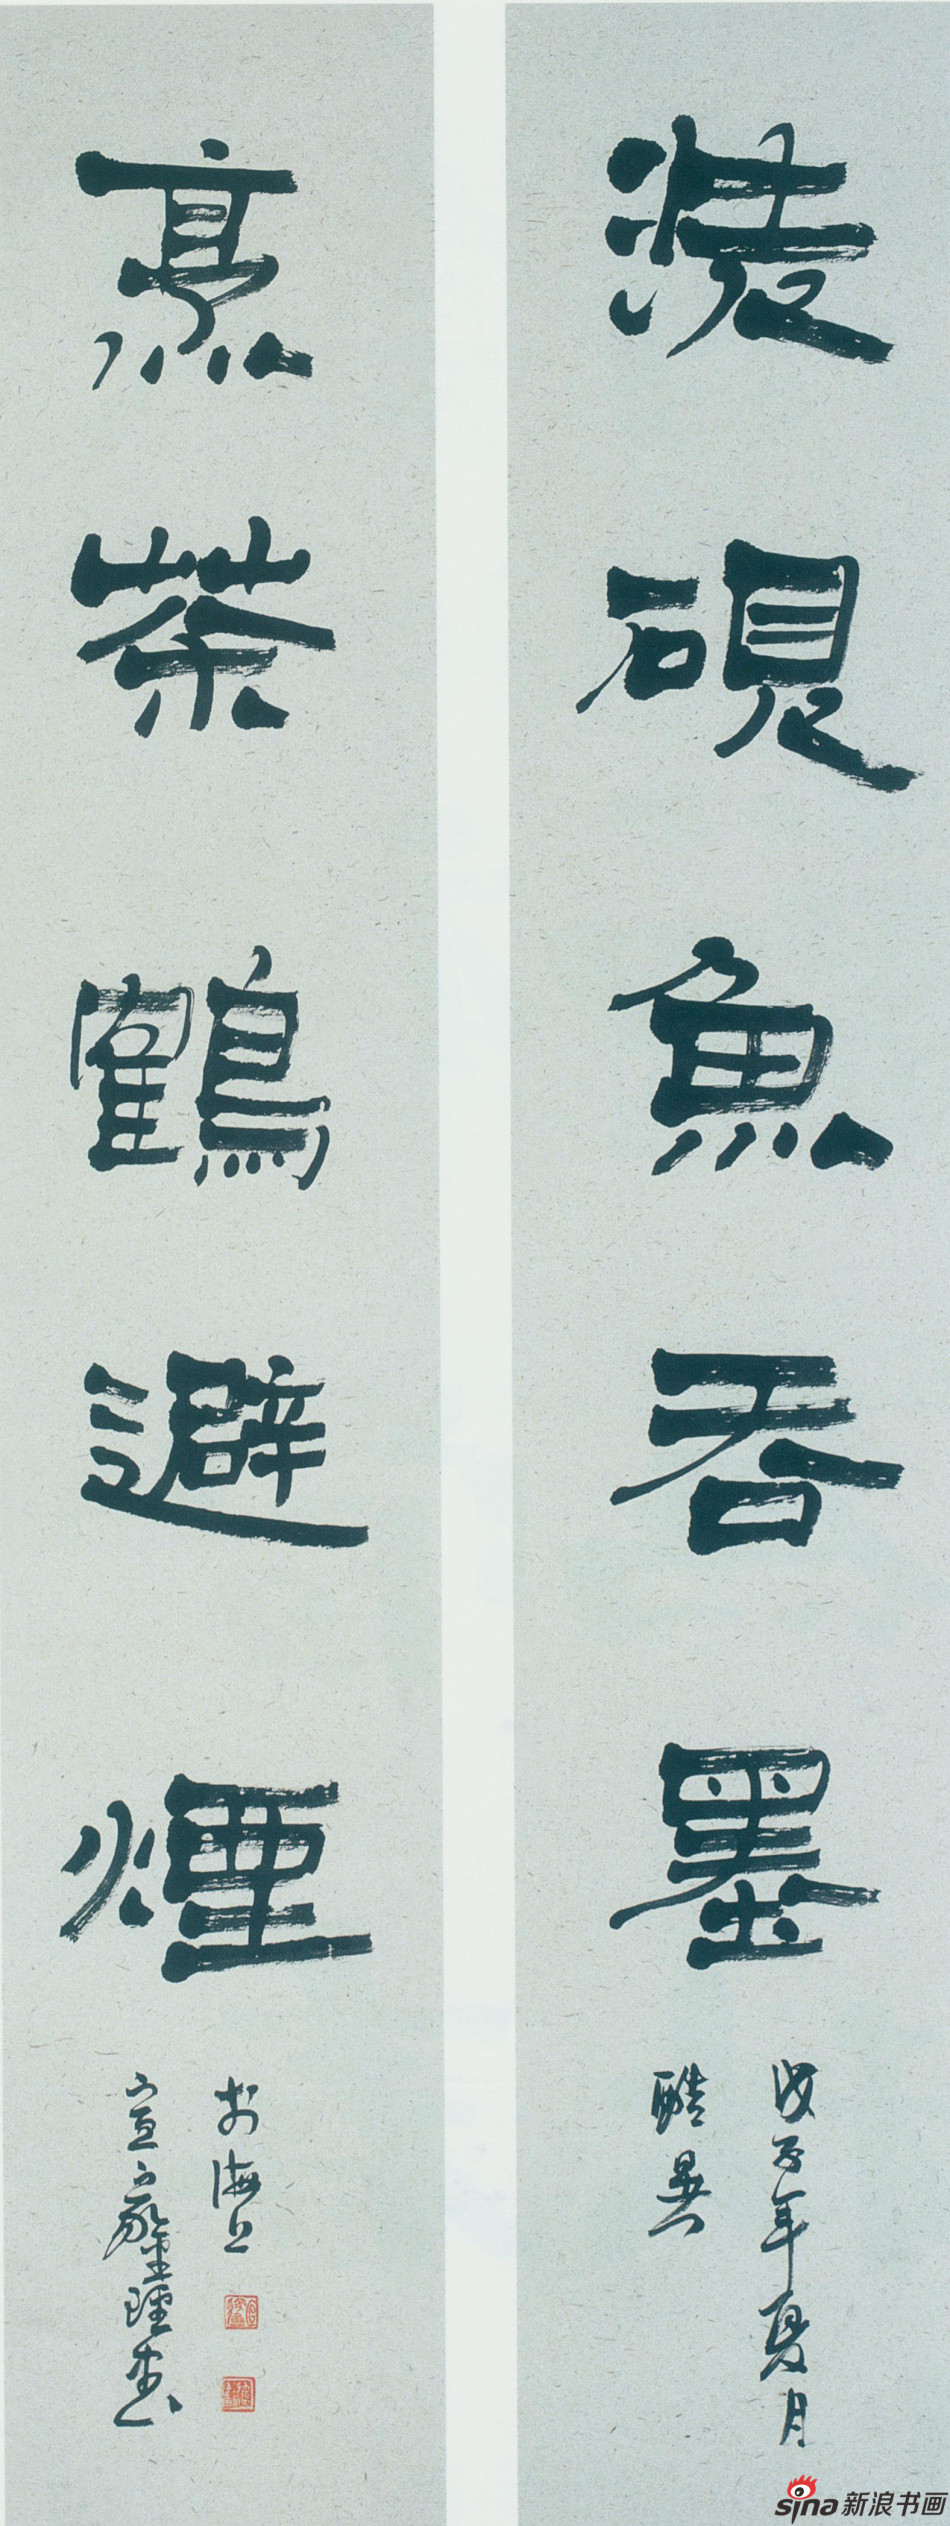 洗硯魚吞墨
戊子年夏月
酷暑
烹茶鶴避煙
於海上
宣家鑫書
sina新浪书画